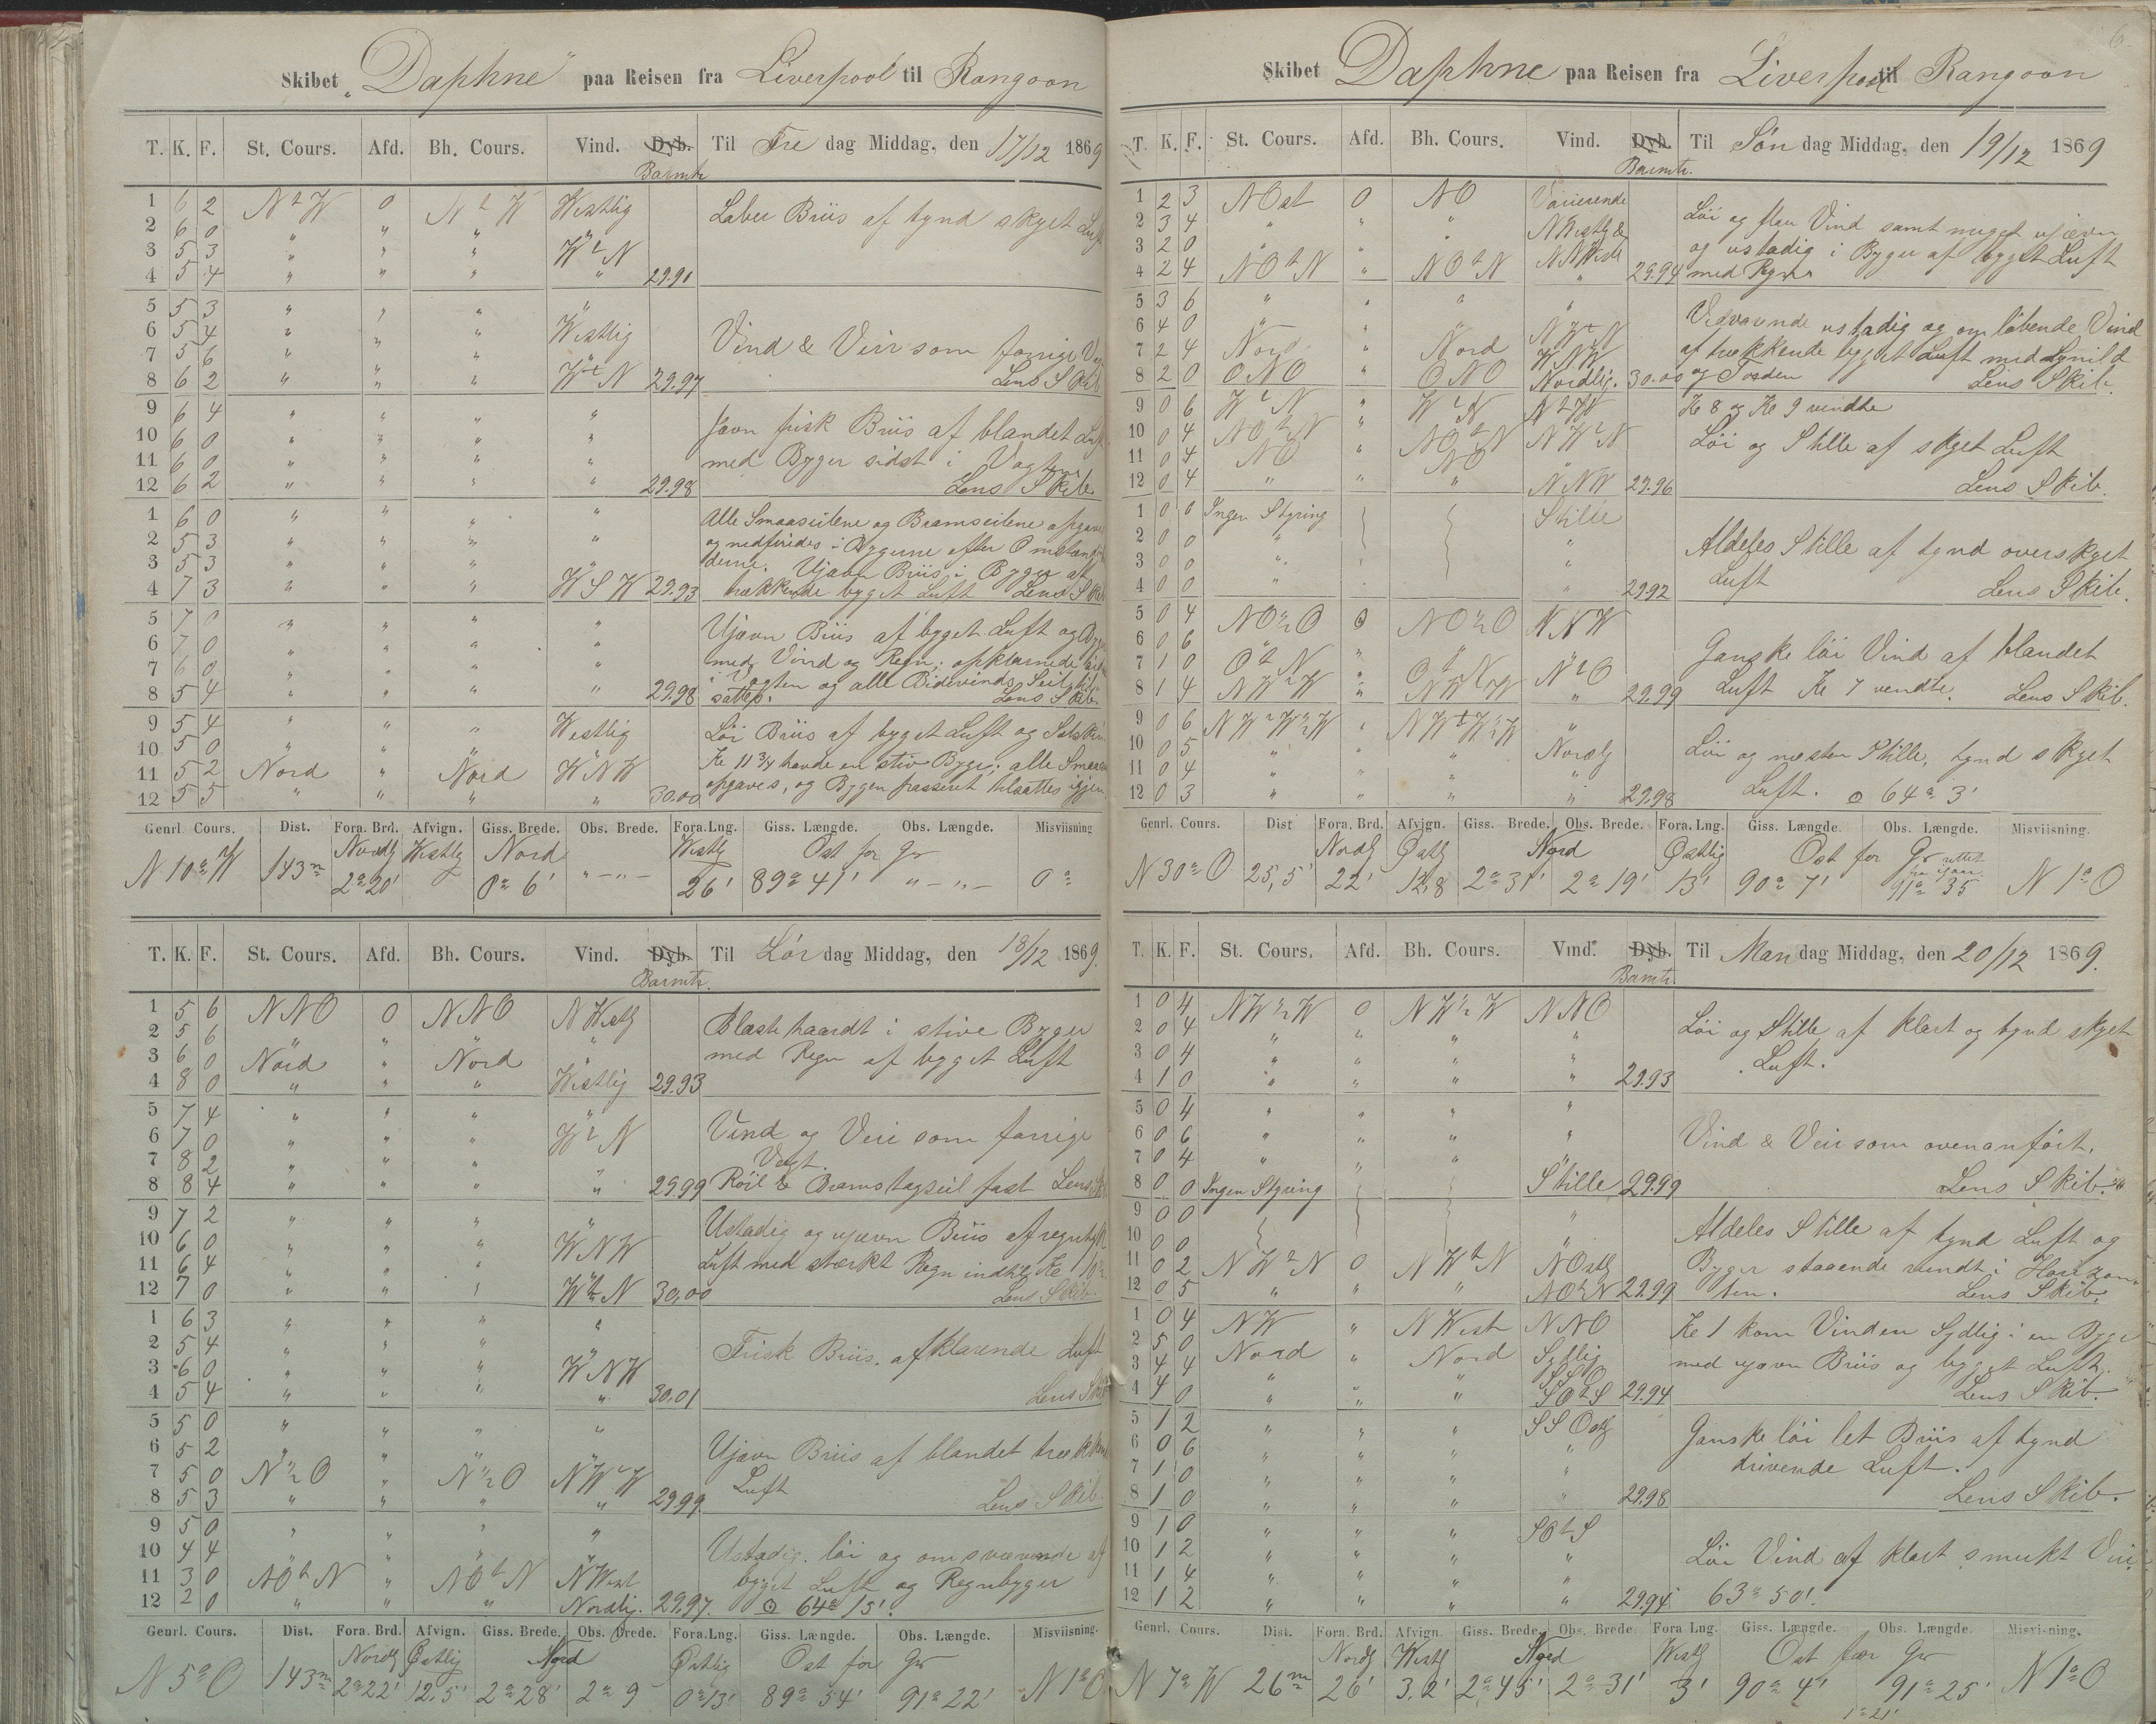 Skibet "Daphne" paa Reisen fra Liverpool til Rangoon
T. K. F. St. Cours. Afd. Bh. Cours. Vind. Dyb. Barmtr Til Fre dag Middag, den 17/12 1869
1 6 2 NtW 0 NtW Westlig
2 6 0 " " "
3 5 3 " " " WtN
4 5 4 " " " " 29.91
Laber Briis af tynd skyet Luft
5 5 3 " " " "
6 5 4 " " " Westlig
7 5 6 " " "
8 6 2 " " " WtN 29.97
Vind & Veir som forrige
Lens Skib
9 6 4 " " " "
10 6 0 " " " "
11 6 0 " " " "
12 6 2 " " " " 29.98
Jævn frisk Briis af blandet Luft
med Byger sidst i Vagten
Lens Skib
1 6 0 " " " "
2 5 3 " " " "
3 5 3 " " " "
4 7 3 " " " WSW 29.93
Alle Smaaseilene og Bramseilene opgaves
og nedfiredes i Bygerne efter Omstændig
derne. Ujævn Briis i Byger af
trækkende byget Luft Lens Skib
5 7 0 " " " "
6 7 0 " " " "
7 6 0 " " " "
8 5 4 " " " " 29.98
Ujævn Briis af byget Luft og Byger
med Vind og Regn; opklarnede
i Vagten og alle Bidevinds Seil til
sattes. Lens Skib.
9 5 4 " " " Westlig
10 5 0 " " "
11 5 2 Nord " Nord WNW
12 5 5 " " " " 30.00
Löi Briis af byget Luft og Solskin
Kl 11 3/4 havde en stiv Byge; alle Smaaseil
opgaves, og Bygen passeret tilsattes igjen
Genrl. Cours. Dist. Fora. Brd. Afvign. Giss. Brede. Obs. Brede. Fora. Lng. Giss. Længde. Obs. Længde. Misviisning
Nordlg Westlg Nord Westlg Ost for Gr
N 10° W 143m 2° 20' 0° 6' "-"- 26' 89° 41' "-"- 0°
T. K. F. St. Cours. Afd. Bh. Cours. Vind. Dyb. Barmtr. Til Lör dag Middag, den 18/12 1869.
1 5 6 NNO 0 NNO NWestlg
2 5 6 " " " "
3 6 0 Nord " Nord "
4 8 0 " " " Westlig 29.93
Blaste haardt i stive Byger
med Regn af byget Luft
5 7 4 " " " "
6 7 0 " " " WtN
7 8 2 " " "
8 8 4 " " " " 29.99
Vind og Veir som forrige
Vagt.
Röil & Bramstagseil fast Lens Skib
9 7 2 " " " "
10 6 0 " " " WNW
11 6 4 " " "
12 7 0 " " " WtN 30,00
Ustadig og ujævn Briis af regntyk
Luft med stærkt Regn indtil Kl 10
Lens Skib.
1 6 3 " " " "
2 5 4 " " "
3 6 0 " " " WNW
4 5 4 " " " " 30,01
Frisk Briis. af klarende Luft
Lens Skib
5 5 0 " " " "
6 5 2 " " " "
7 5 0 N½O " N½O NWtW
8 5 3 " " " " 29.99.
Ujævn Briis af blandet trækkende
Luft Lens Skib
9 5 0 " " " "
10 4 4 " " "
11 3 0 NOtN " NOtN NWest
12 2 0 " " " Nordlig. 29.97.
Ustadig. löi og omsvævende af
byget Luft og Regnbyger
☉ 64° 15'.
Genrl. Cours. Dist. Fora. Brd. Afvign. Giss. Brede. Obs. Brede. Fora. Lng. Giss. Længde. Obs. Længde. Misviisning.
Nordlg Østlig Nord Østlig Ost for Gr
N 5° O 143m 2° 22' 12.5' 2° 28' 2° 9 0° 13' 89° 54' 91° 22' N 1° O
6
Skibet Daphne paa Reisen fra Liverpool til Rangoon
T. K. F. St. Cours. Afd. Bh. Cours. Vind. Dyb. Barmtr. Til Søn dag Middag, den 19/12 1869
1 2 3 NOst 0 NO Varierende
2 3 4 " " " NWestlg &
3 2 0 "
4 2 4 NOtN " NOtN " 29.94
Löi og flau Vind samt meget ujævn
og ustadig i Byger af byget Luft
med Regn
5 3 6 " " " "
6 4 0 " " " NWtN
7 2 4 Nord " Nord WNW
8 2 0 ONO " ONO Nordlig. 30.00
Vedvarende ustadig og omlöbende Vind
af trækkende byget Luft med Lynild
og Torden Lens Skib.
9 0 6 WtN " WtN NtW
10 0 4 NOtN " NOtN NWtN
11 0 4 NO NO "
12 0 4 " " " NNW 29.96
Kl 8 og Kl 9 vendte
Löi og Stille af skyet Luft
Lens Skib.
1 0 0 Ingen Styring Stille
2 0 0 " "
3 0 0 " "
4 0 0 " " 29.92
Aldeles Stille af tynd overskyet
Luft Lens Skib.
5 0 4 NO½O 0 NO½O NNW
6 0 6 " " "
7 1 0 OtN " OtN NtO
8 1 4 NWtW " NWtW " 29.99
Ganske löi Vind af blandet
Luft Kl 7 vendte. Lens Skib.
9 0 6 NWtW½W " NWtW½W "
10 0 5 " " " Nordlg
11 0 4 " " " "
12 0 3 " " " " 29.98
Löi og næsten Stille, tynd skyet
Luft. ☉ 64° 3'
Genrl. Cours. Dist Fora. Brd. Afvign. Giss. Brede. Obs. Brede. Fora. Lng. Giss. Længde. Obs. Længde. Misviisning.
Nordlg Østlg Nord Østlig Ost for Gr
N 30° O 25,5' 22' 12,8 2° 31' 2° 19' 13' 90° 7' 91° 35 N 1° O
T. K. F. St. Cours. Afd. Bh. Cours. Vind. Dyb. Barmtr. Til Man dag Middag, den 20/12 1869.
1 0 4 NW½W 0 NW½W NNO
2 0 4 " " " "
3 0 4 " " " "
4 1 0 " " " " 29.93
Löi og Stille af klart og tynd skyet
Luft.
5 0 4 " " " "
6 0 6 " " " "
7 0 4 " " "
8 0 0 Ingen Styring Stille 29.99
Vind & Veir som ovenanfört.
Lens Skib.
9 0 0 "
10 0 0
11 0 2 NWtN 0 NWtN NOstlg
12 0 5 " " " NOtN 29.99
Aldeles Stille af tynd Luft og
Byger staaende rundt i Horizon-
ten. Lens Skib.
1 0 4 NW " NWest NNO
2 5 0 Nord " Nord Sydlig
3 4 4 " " " SSO
4 4 0 " " " SOtS 29.94
Kl 1 kom Vinden Sydlig i en Byge
med ujævn Briis og byget Luft.
Lens Skib.
5 1 2 " " " SSOstlg
6 0 6 " " " "
7 1 0 " " " "
8 1 0 " " " " 29.98
Ganske löi let Briis af tynd
drivende Luft.
Lens Skib.
9 1 0 " " " SOtS
10 1 2 " " " "
11 1 4 " " " "
12 1 2 " " " " 29.94
Löi Vind af klart smukt Veir
63° 50'.
Genrl. Cours. Dist. Fora. Brd. Afvign. Giss. Brede. Obs. Brede Fora Lng. Giss. Længde. Obs. Længde. Misvisning.
Nordlg Westlg Nord Westlg Ost for Gr
N 7° W 26m 26' 3.2' 2° 45' 2° 31' 3' 90° 4' 91° 25' N 1° O
1° 21'